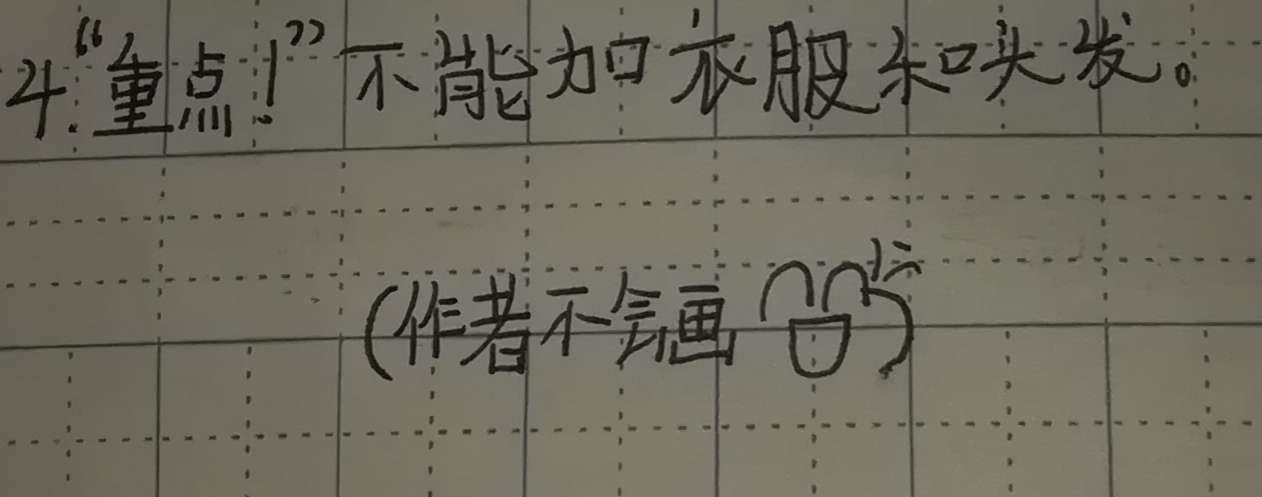 4.“重点!”不能加衣服和头发。
(作者不会画)